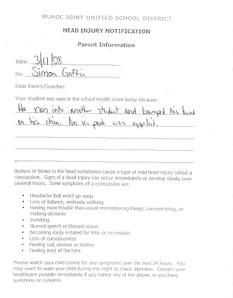 MUROC JOINT UNIFIED SCHOOL DISTRICT
HEAD INJURY NOTIFICATION
Parent Information
Date: 3/11/08
To: Simon Goffin
Dear Parent/Guardian:
Your student was seen in the school health room today because:
He ran into another student and bumped his head
on his chin. An ice pack was applied.
Bumps or blows to the head sometimes cause a type of mild brain injury called a
concussion. Signs of a head injury can occur immediately or develop slowly over
several hours. Some symptoms of a concussion are:
• Headache that won't go away
• Loss of balance, unsteady walking
• Having more trouble than usual remembering things, concentrating, or
making decisions
• Vomiting
• Slurred speech or blurred vision
• Becoming easily irritated for little or no reason
• Loss of consciousness
• Feeling sad, anxious or listless
• Feeling tired all the time
Please watch your child closely for any symptoms over the next 24 hours. You
may want to wake your child during the night to check alertness. Contact your
healthcare provider immediately if you notice any of the above, or you have
questions or concerns.